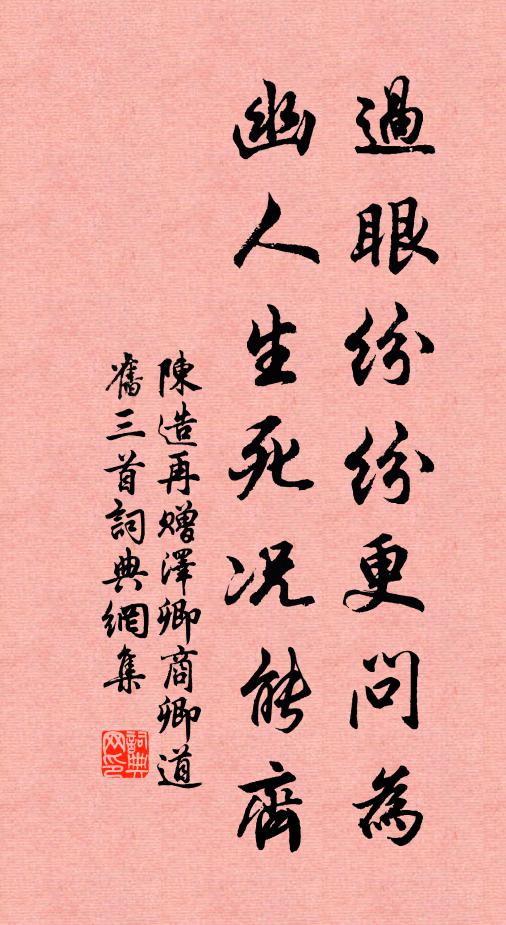 過眼紛紛更問為
幽人生死況能齊
陳造再贈澤卿商卿道
舊三首詞典網集
詞典網印